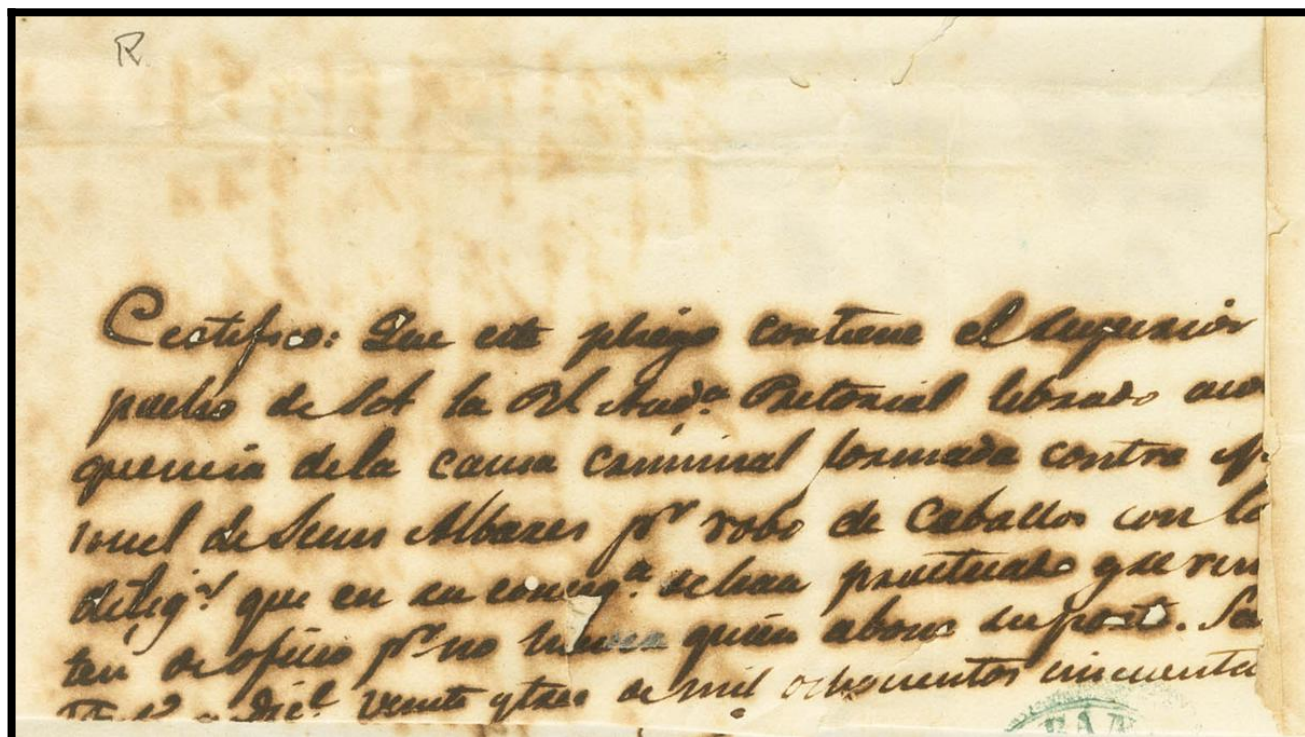 R.
Certifico: Que este pliego contiene el superior
pacho de S.A. la Rl. Auda. Pretorial librado
quencia de la causa criminal formada contra
de Jesus Albares pr. robo de Caballos con
diligs. que en su consega. se han practicado y se
ten de oficio pr. no quien abone su porte.
veinte y tres de mil ochocientos cincuenta